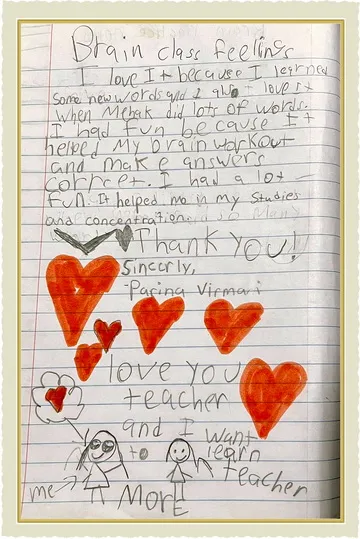 Brain class feelings
I love It because I learned
Some new words and I also love it
when Mehak did lots of words.
I had fun because It
helped My brain workout
and make answers
correct. I had a lot
fun. It helped me in my Studies
and concentration.
Thank You!
Sincerly,
Parina Virmani
love you
teacher
and I want
to learn
More
me
teacher